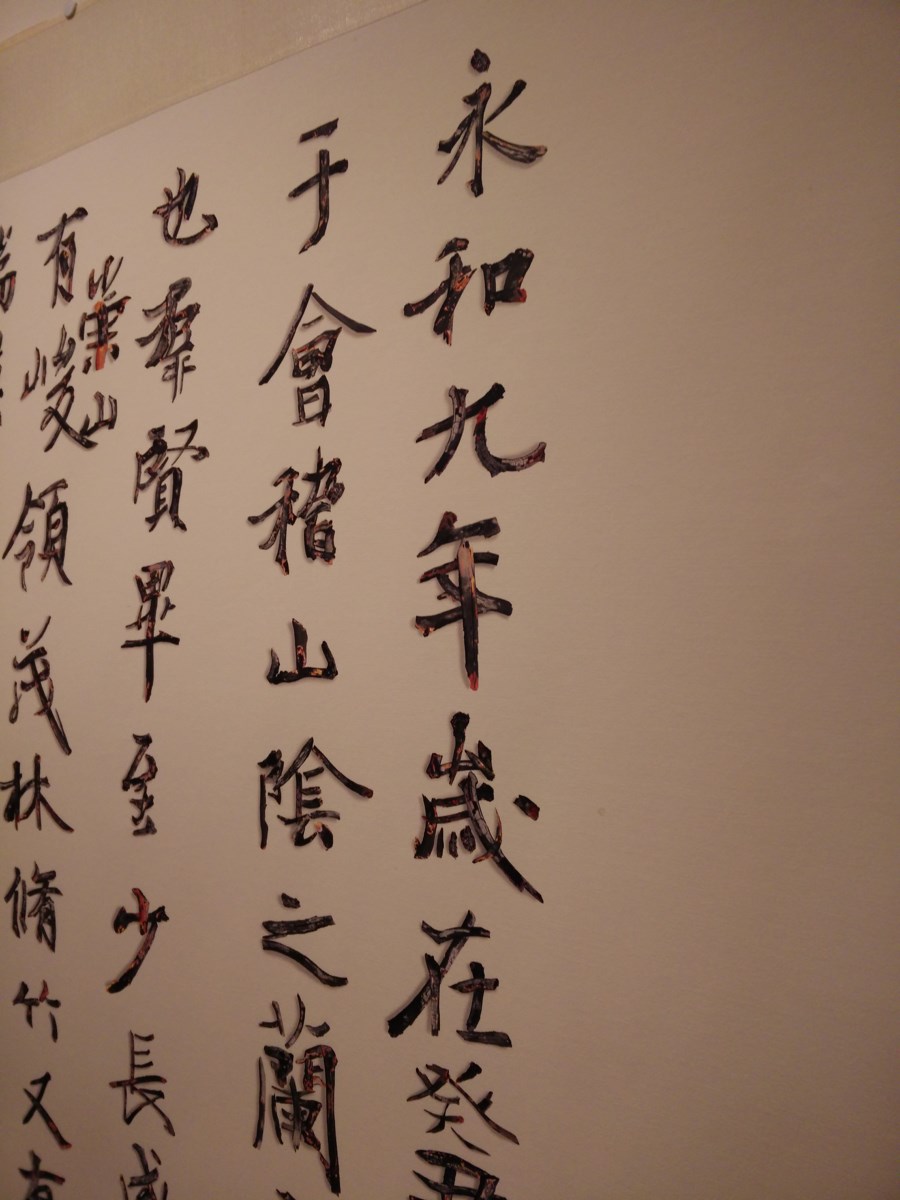 永和九年歲在癸丑
于會稽山陰之蘭
也羣賢畢至少長咸
有崇山峻領茂林脩竹又有